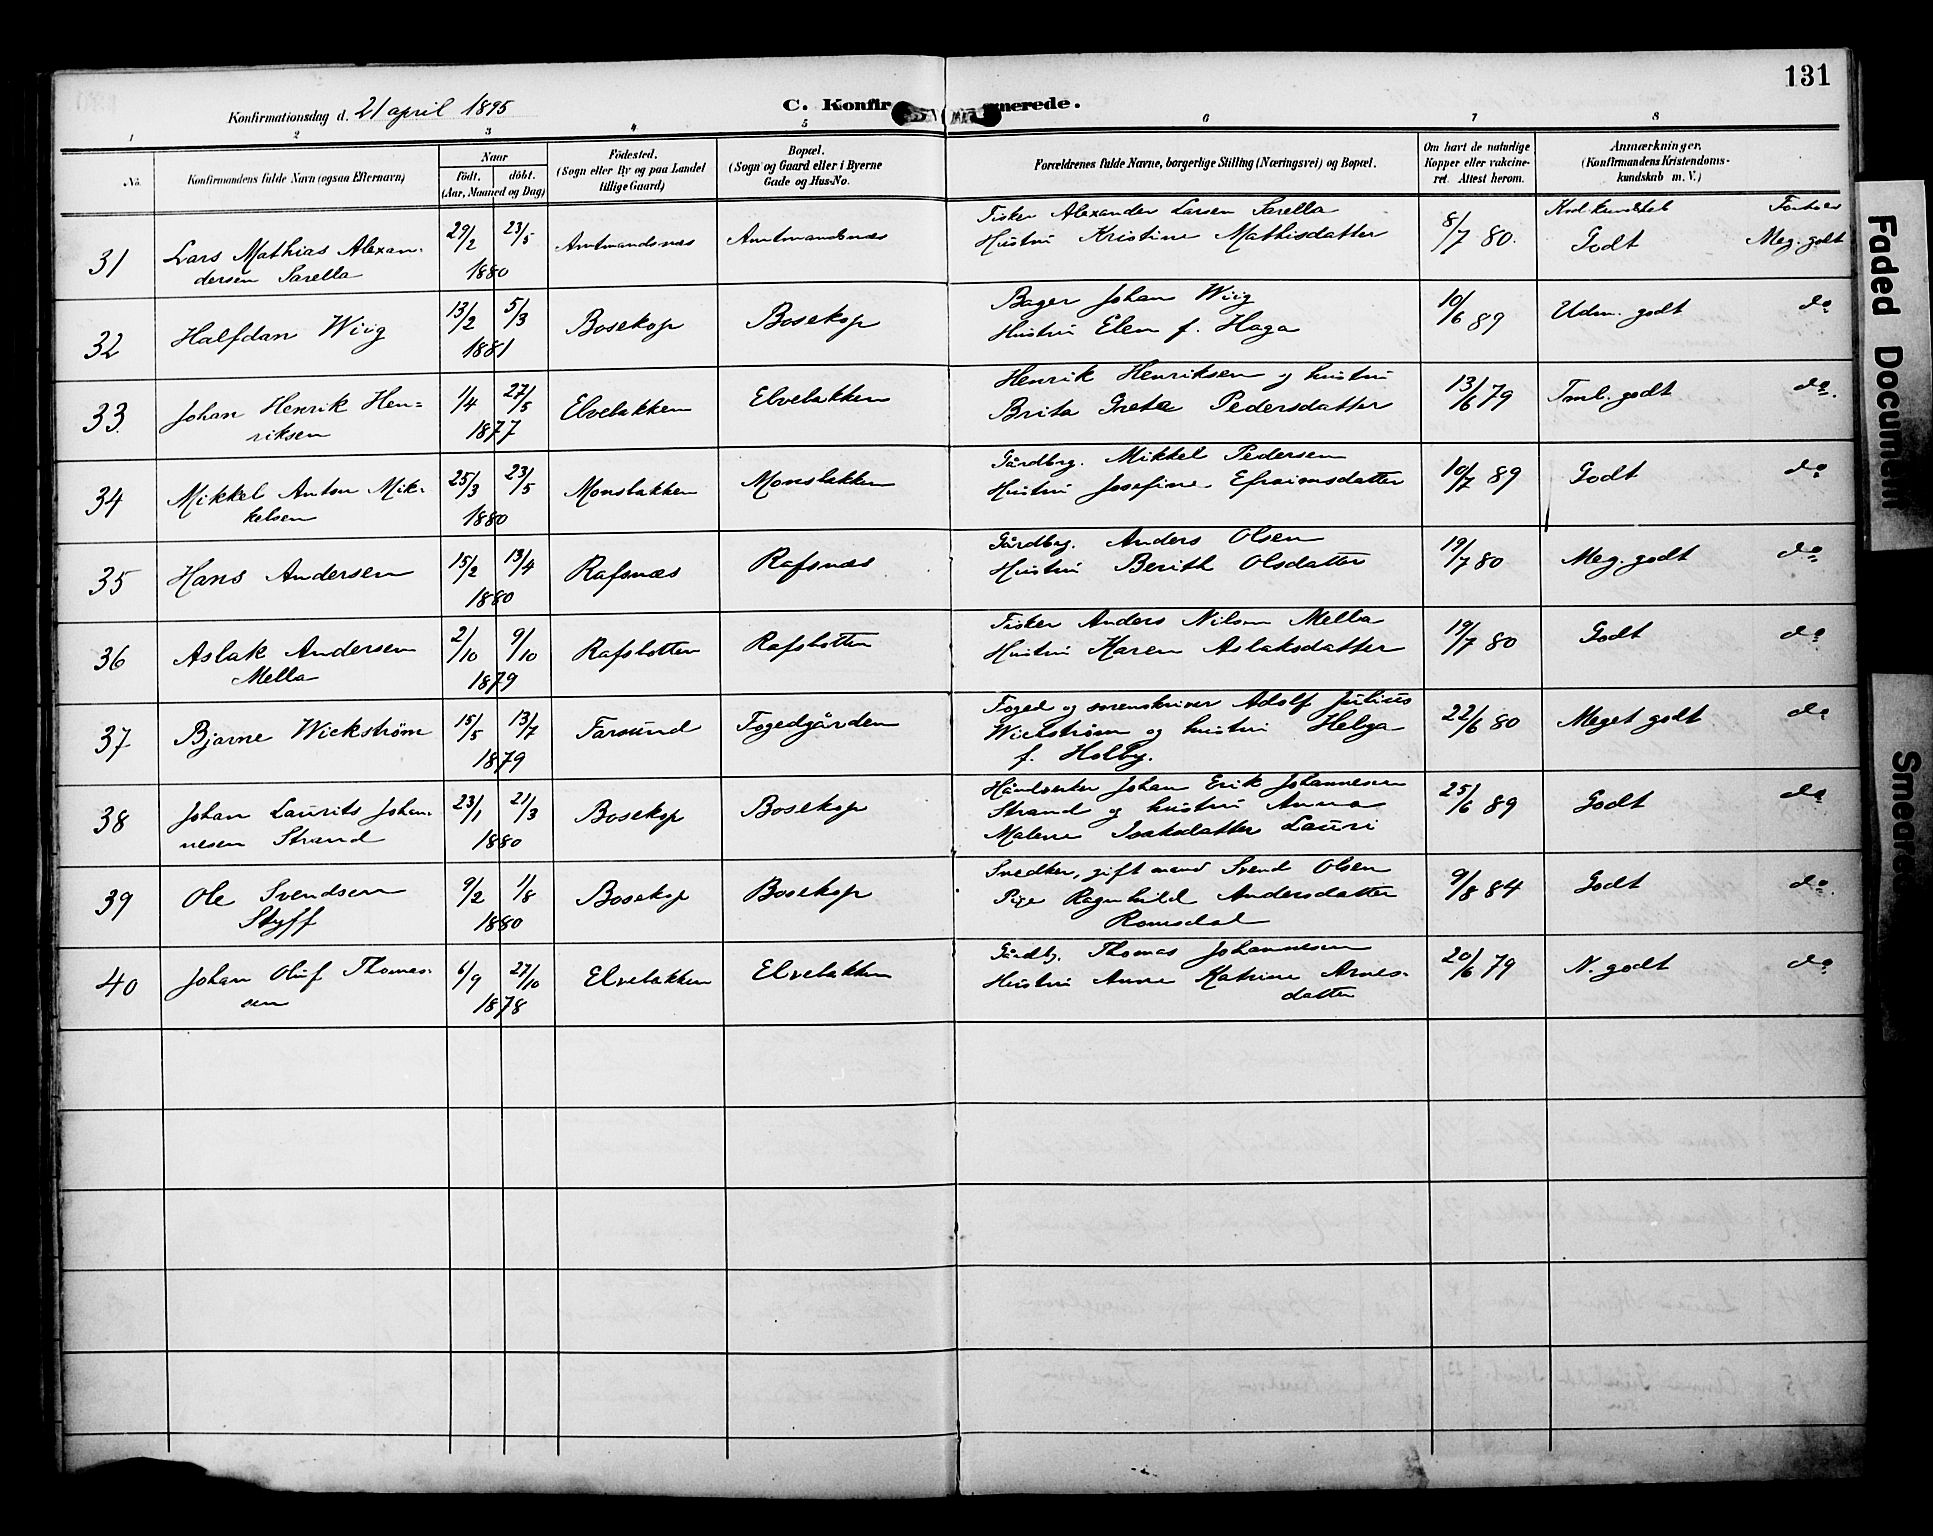 131
Konfirmationsdag d. 21 april 1895
C. Konfir merede.
1 2 3 4 5 6 7 8
No.
Konfirmandens fulde Navn (ogsaa Efternavn)
Naar
født. døbt.
(Aar, Maaned og Dag)
Fødested.
(Sogn eller By og paa Landet
tillige Gaard)
Bopæl.
(Sogn og Gaard eller i Byerne
Gade og Hus-No.
Forældrenes fulde Navne, borgerlige Stilling (Næringsvei) og Bopæl.
Om havt de naturlige
Kopper eller vakcine-
ret. Attest herom.
Anmærkninger.
(Konfirmandens Kristendoms-
kundskab m. V.)
Kristkundskab Forhold
31 Lars Mathias Alexan-
dersen Sarella
29/2 23/5
1880
Amtmandsnæs
Amtmandsnæs
Fisker Alexander Larsen Sarella
Hustru Kristine Mathisdatter
8/7 80.
Godt Meg. godt
32 Halfdan Wiig
13/2 5/3
1881
Bosekop
Bosekop
Bager Johan Wiig
Hustru Elen f. Haga
10/6 89
Udm. godt do
33. Johan Henrik Hen=
riksen
1/4 27/5
1877
Elvebakken
Elvebakken
Henrik Henriksen og hustru
Brita Greta Pedersdatter
13/6 79
Tml. godt do.
34 Mikkel Anton Mik-
kelsen
25/3 23/5
1880
Monsbakken
Monsbakken
Gårdbrg. Mikkel Pedersen
Hustru Josefine Efraimsdatter
10/7 89
Godt do
35 Hans Andersen
15/2 13/4
1880
Rafsnæs
Rafsnæs
Gårdbrg. Anders Olsen
Hustru Berith Olsdatter
19/7 80
Meg. godt do
36 Aslak Andersen
Mella
2/10 9/10
1879
Rafsbotten
Rafsbotten
Fisker Anders Nilsen Mella
Hustru Karen Aslaksdatter
19/7 80
Godt do
37 Bjarne Wickstrøm
15/5 13/7
1879
Farsund
Fogedgården
Foged og sorenskriver Adolf Julius
Wickstrøm og hustru Helga
f. Holby.
22/6 80
Meget godt do
38 Johan Laurits Johan-
nesen Strand
23/1 21/3
1880
Bosekop
Bosekop
Håndverker Johan Erik Johannesen
Strand og hustru Anna
Malene Isaksdatter Lauri
25/6 89
Godt do
39 Ole Svendsen
Styff
9/2 1/8
1880
Bosekop
Bosekop
Snedker, gift mand Svend Olsen
Pige Ragnhild Andersdatter
Romsdal
9/8 84
Godt do.
40 Johan Oluf Thomas-
sen
6/9 27/10
1878
Elvebakken
Elvebakken
Gårdb. Thomas Johannesen
Hustru Anne Katrine Arnes-
datter
20/6 79
N. godt do
Faded Document
Smeared